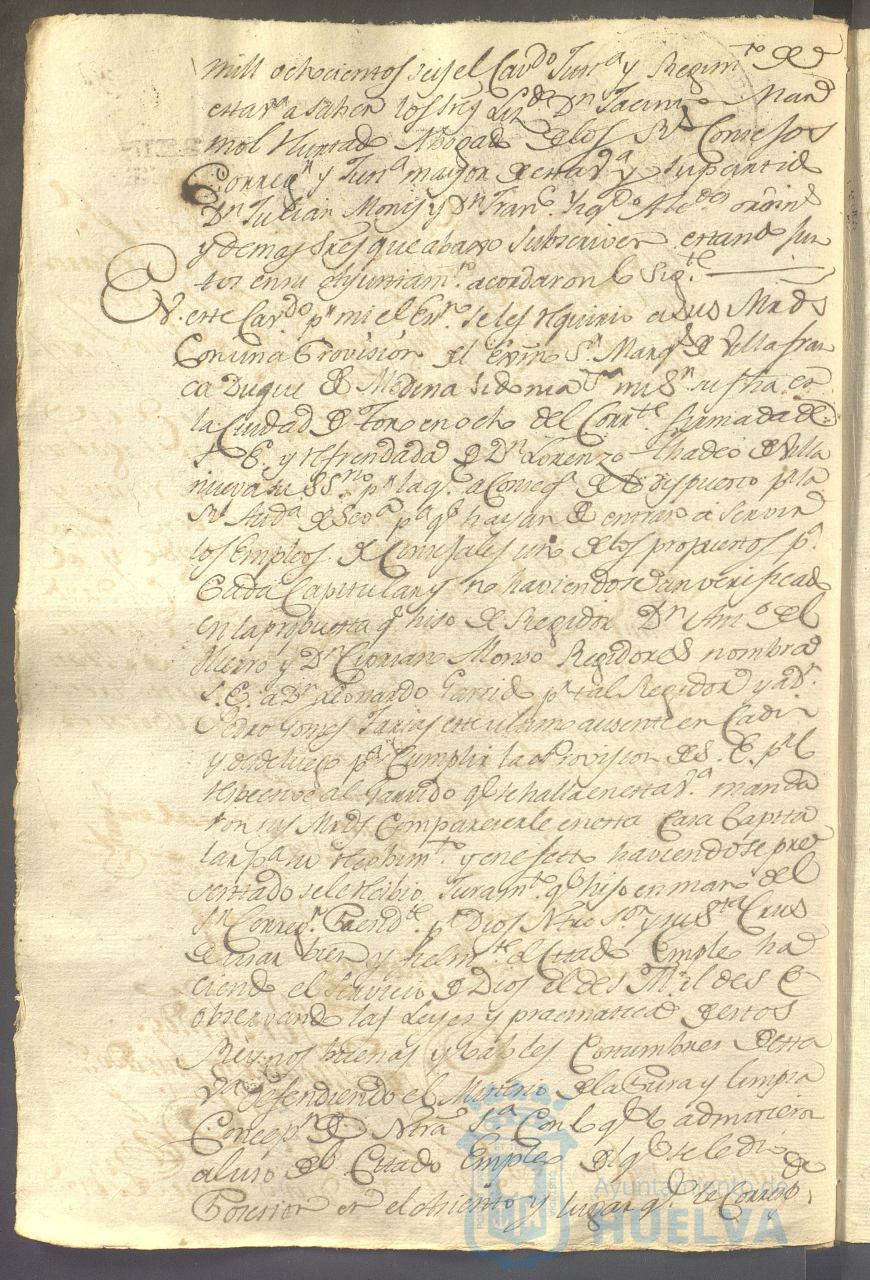 mill ochocientos seis el Cavdo Justa y Regimto de
esta va a saber los Sres Lizdo Dn Jacinto Mar
mol Hurtado Abogado de los Rs Consejos
Corregr y Justa maior de esta va y su partido
Dn Julian Monis y Dn Franco Alcdes ordino
y demas Sres que abaxo subscriven estando jun
tos en su Ayuntamto acordaron lo sigte
En este Cavdo pr mi el Esno se les requirio a sus Mrds
Con una Provision del Exmo Sr Marqs de Villafran
ca Duque de Medina Sidonia mi Sr su fha en
la Ciudad de Toro en ocho del Corrte firmada de
S. E. y refrendada de Dn Lorenzo Thadeo de Villa
nueva su Ssrio pr la qe a conseqa de lo dispuesto pr la
Rl Auda de Seva pa qe hayan de entrar a servir
los Empleos de Concejales uno de los propuestos pa
Cada Capitular y no haviendose verificado
en la propuesta qe hiso de Regidor Dn Anto del
Hierro y Dn Cipriano Alonso Regidores nombra
S. E. a Dn Leonardo Garrido pr tal Regidor y a Dn
Pedro Gomes Farias este ultimo ausente en Cadiz
y desde luego pa Cumplir la Provision de S. E. pr lo
respectivo al Garrido qe se halla en esta va manda
ron sus Mrds Comparecerle en esta Casa Capitu
lar pa su recibimto y en efecto haviendose pre
sentado se le recibio Juramto qe hiso en mano del
Sr Corregr Presidte pr Dios Ntro Sor y su Sta Crus
de usar bien y fielmte el Citado Empleo ha
ciendo el servicio de Dios el de S. M. el de S. E.
observando las Leyes y pracmaticas de estos
Reynos buenas y loables Costumbres de esta
va defendiendo el Misterio de la Pura y limpia
Concepn de Ntra Sra Con lo qe lo admitieron
al uso del Citado Empleo del qe se le dio
Posesion en el asiento y lugar qe le Corresde
Ayuntamiento de
HUELVA